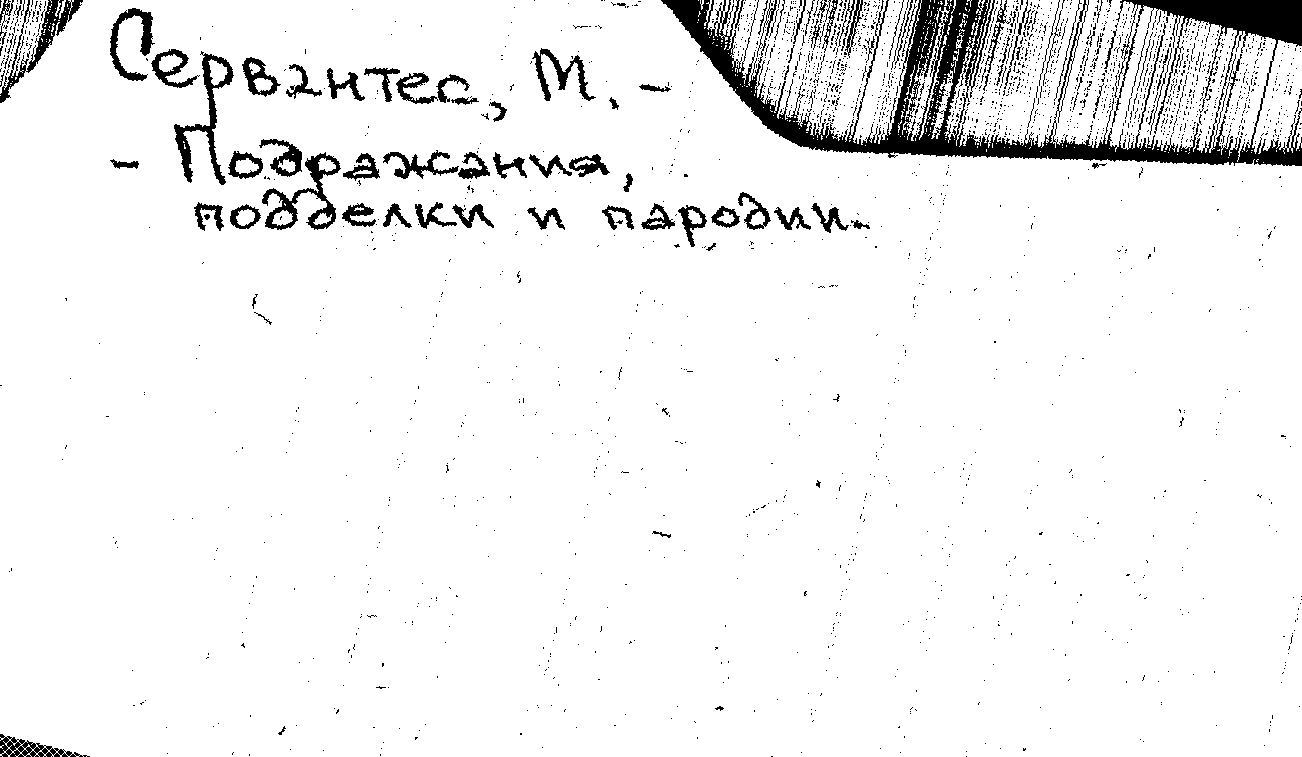 Сервантес, М. -
- Подражания,
подделки и пародии.